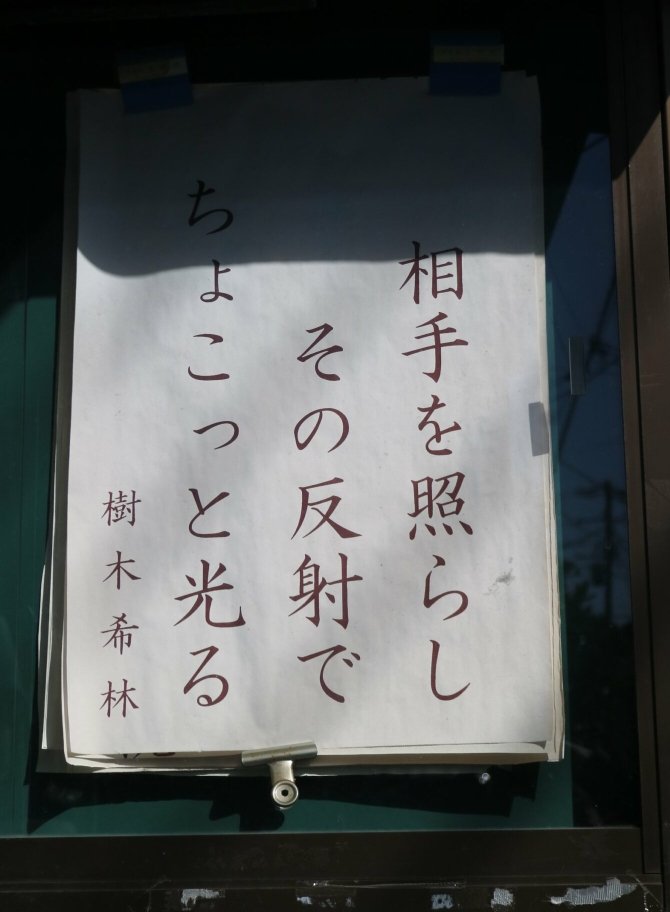 相手を照らし
その反射で
ちょこっと光る
樹木希林